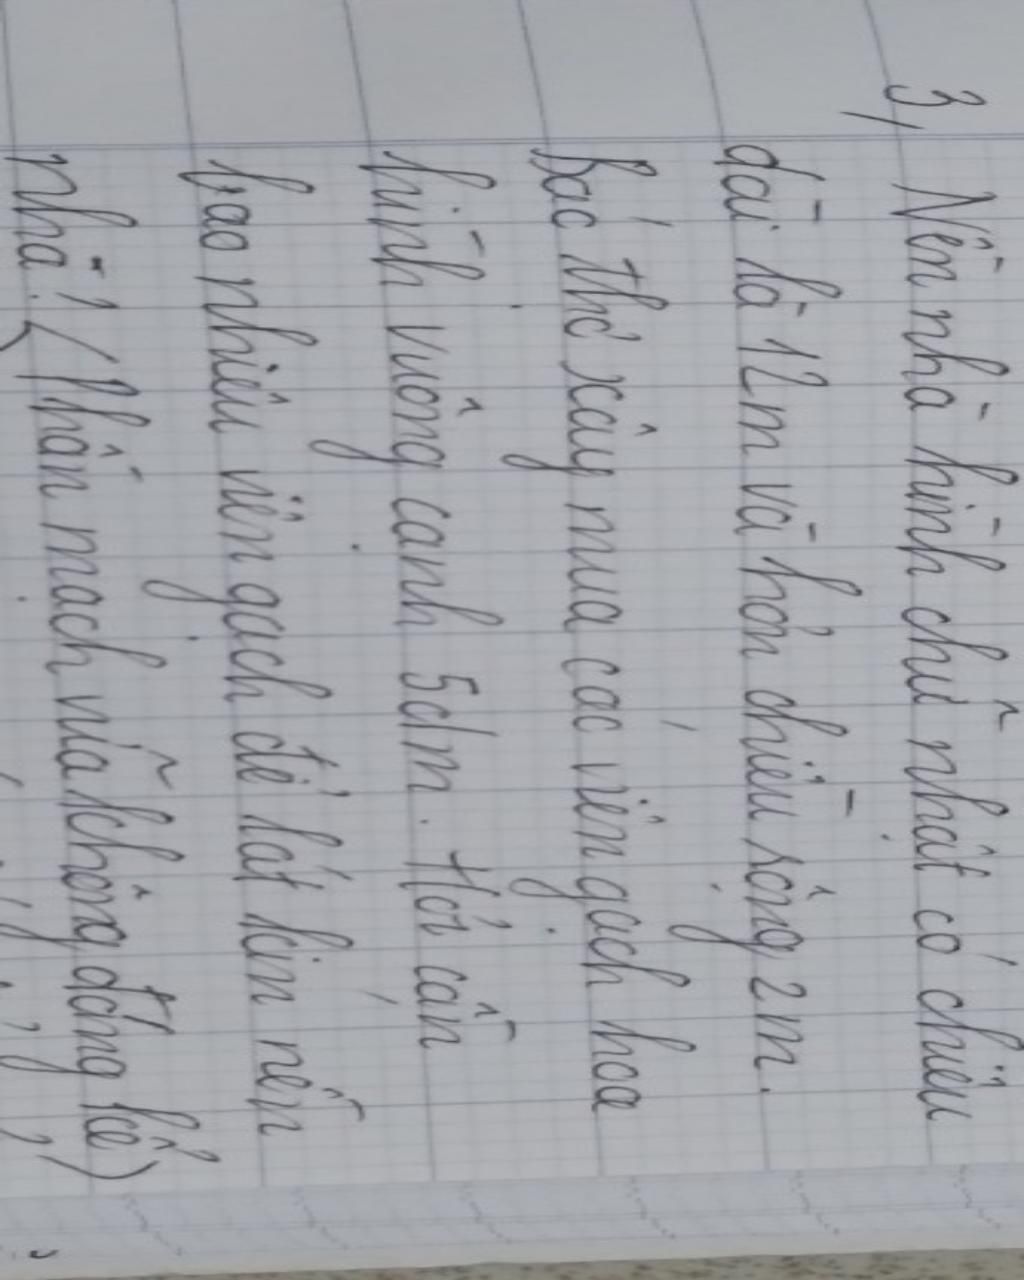 3, Nền nhà hình chữ nhật có chiều
dài là 12m và hơn chiều rộng 2m.
Bác thợ xây mua các viên gạch hoa
hình vuông cạnh 5dm. Hỏi cần
bao nhiêu viên gạch để lát kín nền
nhà? (Phần mạch vữa không đáng kể)